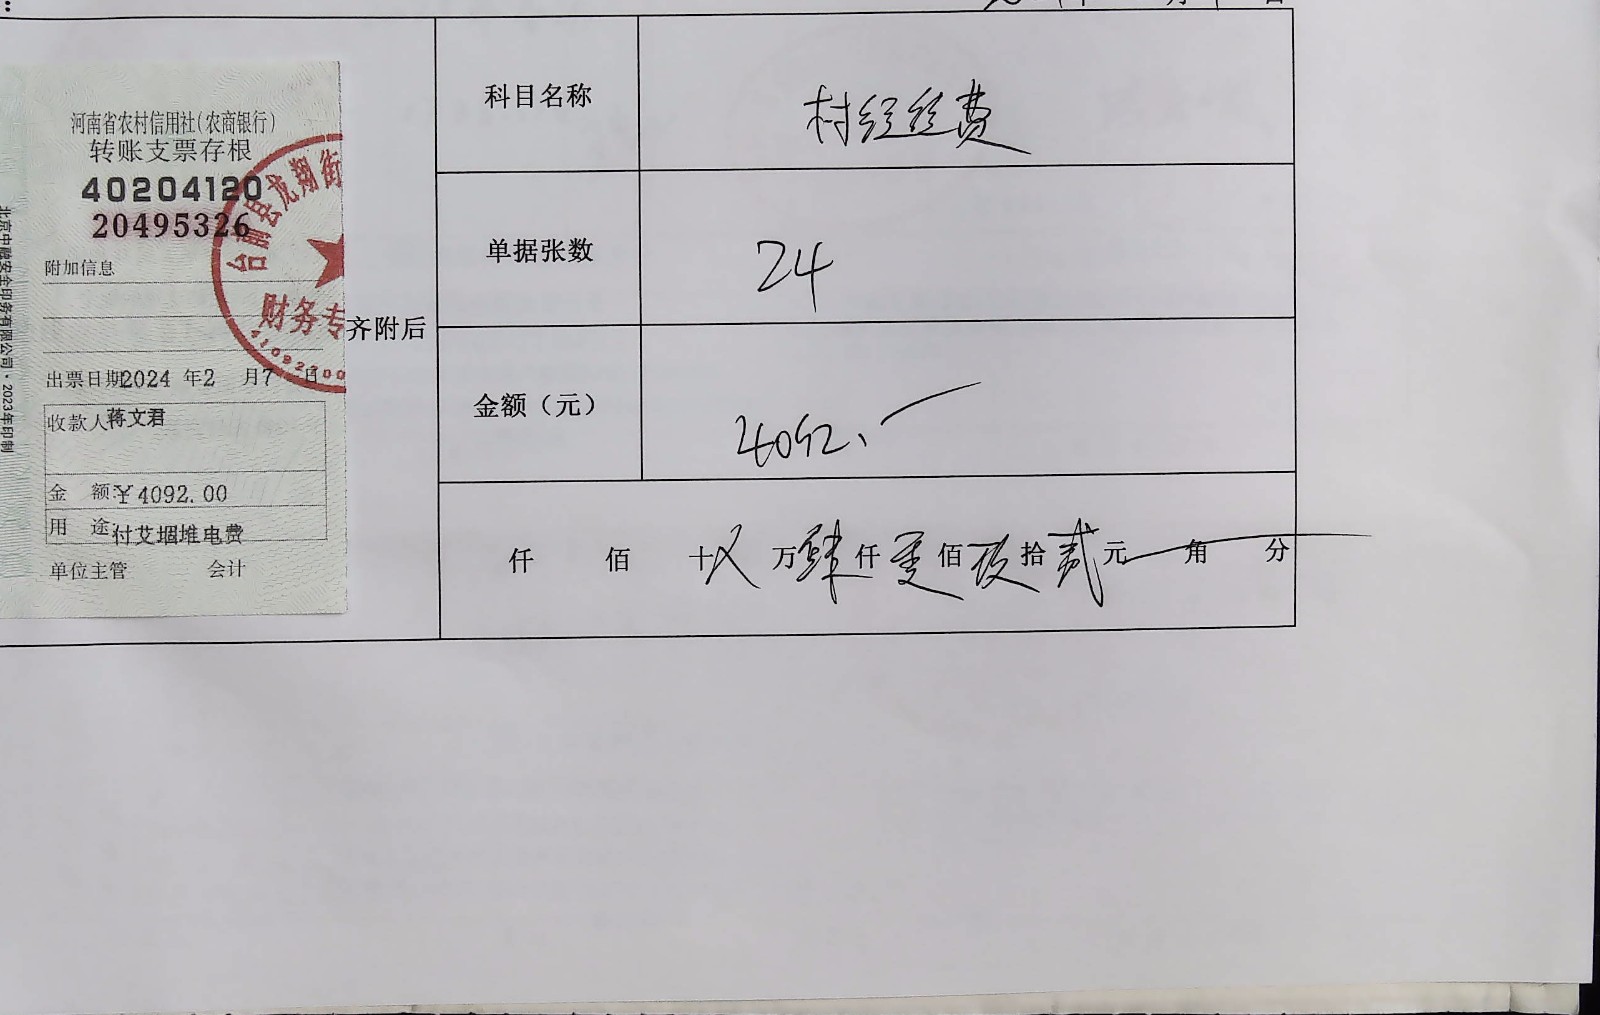 河南省农村信用社(农商银行)
转账支票存根
40204120
20495326
附加信息
出票日期2024 年2 月7 日
收款人蒋文君
金 额:¥4092.00
用 途:付艾堌堆电费
单位主管 会计
北京中融安全印务有限公司·2023年印制
台前县龙翔街
财务专
41092700
齐附后
科目名称 村经经费
单据张数 24
金额（元） 4092.
仟 佰 十 万肆仟零佰玖拾贰元 角 分